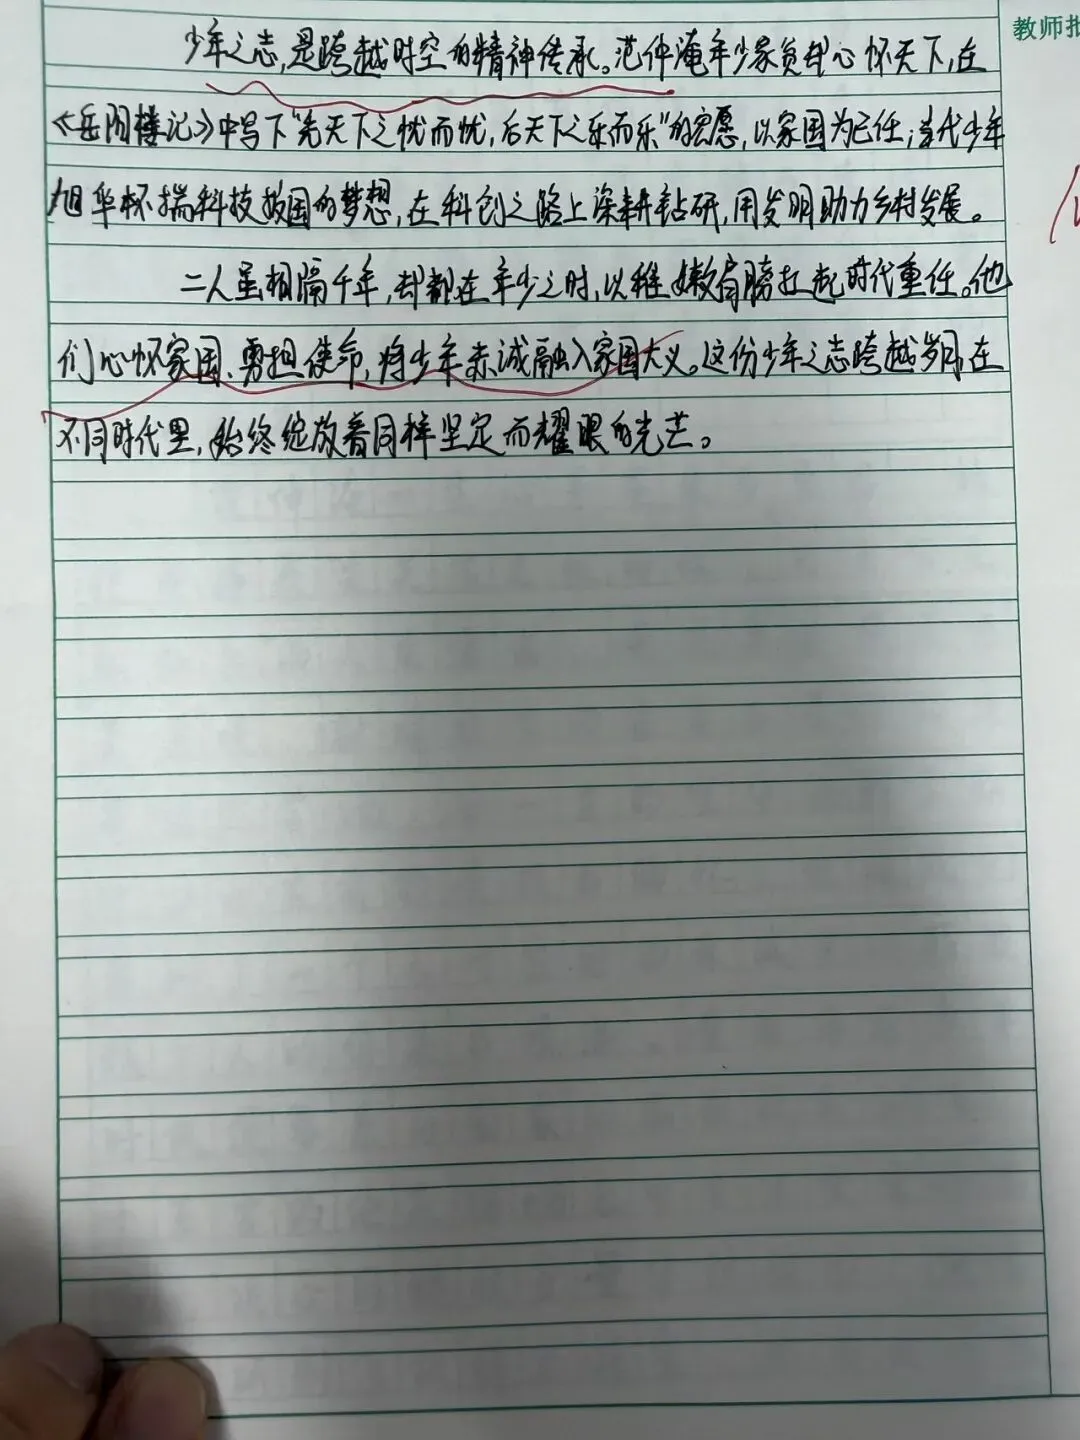 少年之志,是跨越时空的精神传承。范仲淹年少家贫却心怀天下,在
《岳阳楼记》中写下“先天下之忧而忧,后天下之乐而乐”的宏愿,以家国为己任;当代少年
旭华怀揣科技报国的梦想,在科创之路上深耕钻研,用发明助力乡村发展。
二人虽相隔千年,却都在年少之时,以稚嫩肩膀扛起时代重任。他
们心怀家国、勇担使命,将少年赤诚融入家国大义。这份少年之志跨越岁月,在
不同时代里,始终绽放着同样坚定而耀眼的光芒。
教师批